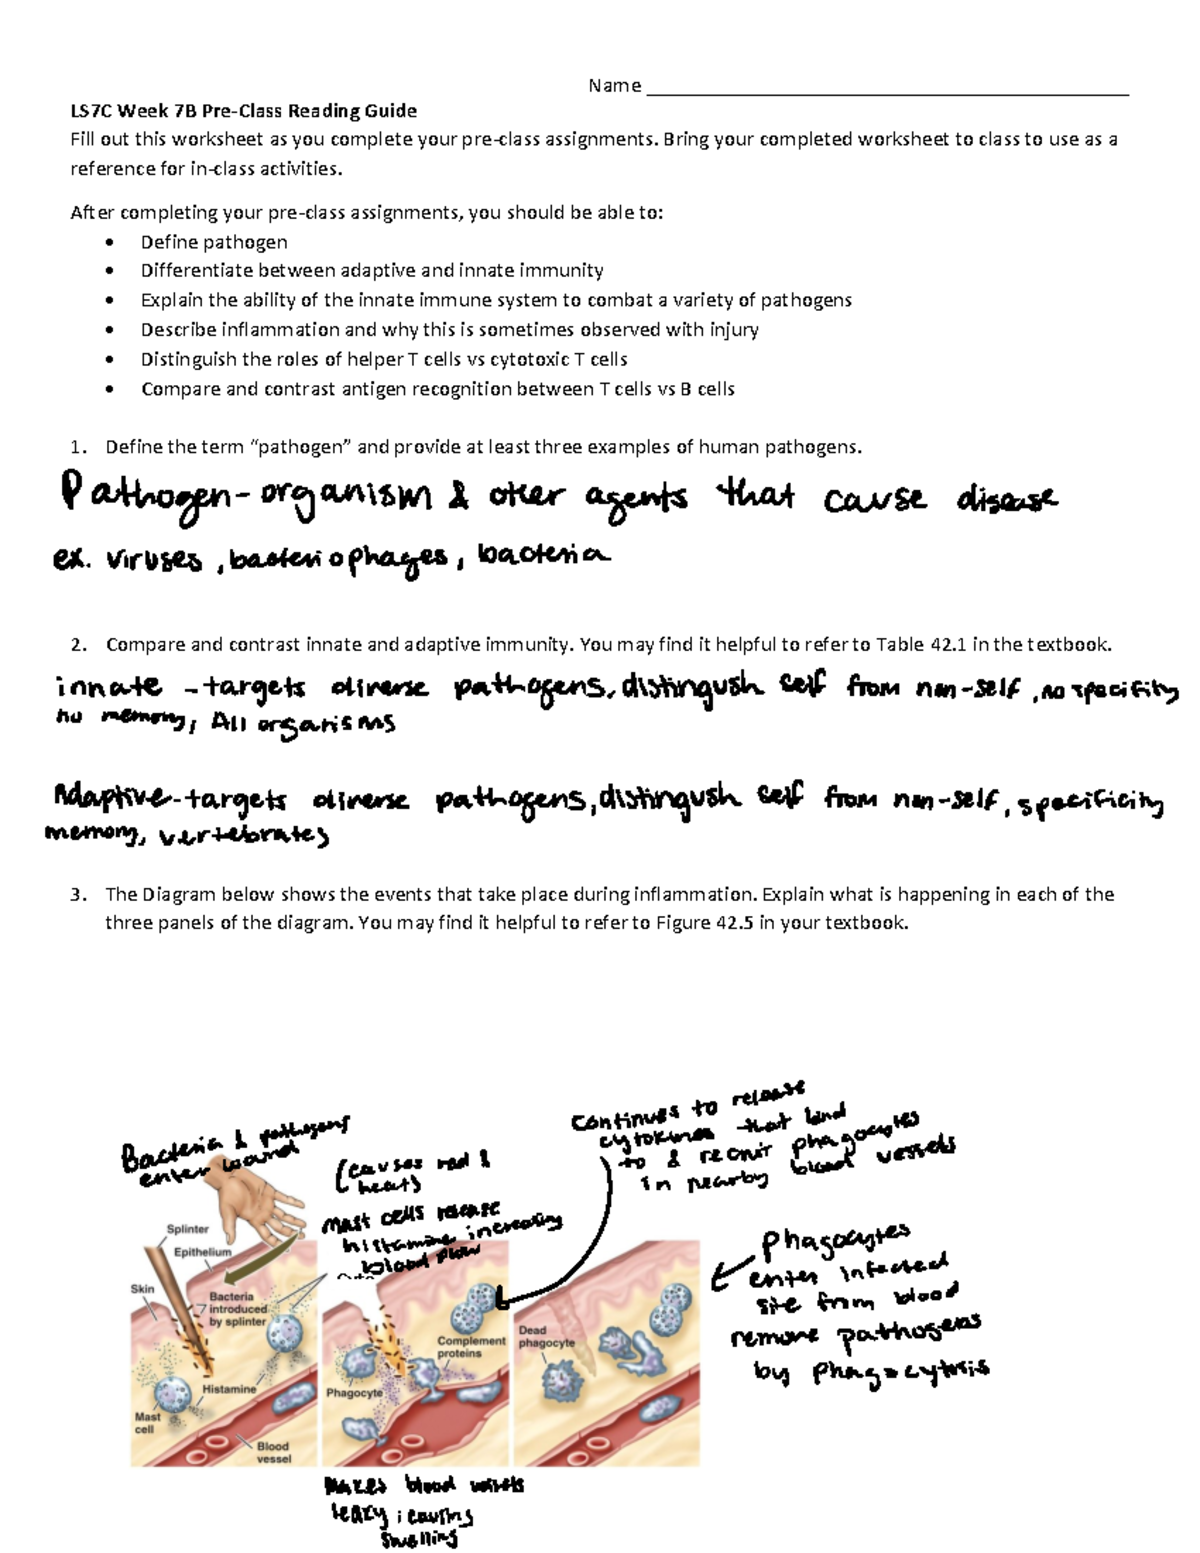 Name
LS7C Week 7B Pre-Class Reading Guide
Fill out this worksheet as you complete your pre-class assignments. Bring your completed worksheet to class to use as a
reference for in-class activities.
After completing your pre-class assignments, you should be able to:
• Define pathogen
• Differentiate between adaptive and innate immunity
• Explain the ability of the innate immune system to combat a variety of pathogens
• Describe inflammation and why this is sometimes observed with injury
• Distinguish the roles of helper T cells vs cytotoxic T cells
• Compare and contrast antigen recognition between T cells vs B cells
1. Define the term “pathogen” and provide at least three examples of human pathogens.
Pathogen - organism & other agents that cause disease
ex. viruses, bacteriophages, bacteria
2. Compare and contrast innate and adaptive immunity. You may find it helpful to refer to Table 42.1 in the textbook.
innate - targets diverse pathogens, distingush self from non-self, no specifity
no memory, All organisms
Adaptive - targets diverse pathogens, distingush self from non-self, specificity
memory, vertebrates
3. The Diagram below shows the events that take place during inflammation. Explain what is happening in each of the
three panels of the diagram. You may find it helpful to refer to Figure 42.5 in your textbook.
Bacteria & pathogens
enter wound
(causes red &
heat)
Mast cells release
histamine increasing
blood flow
continues to release
cytokines that bind
to & recruit phagocytes
in nearby blood vessels
Phagocytes
enter infected
site from blood
remove pathogens
by phagocytosis
Splinter
Epithelium
Skin
Bacteria
introduced
by splinter
Histamine
Mast
cell
Blood
vessel
Complement
proteins
Phagocyte
Dead
phagocyte
makes blood vessels
leaky; causing
swelling